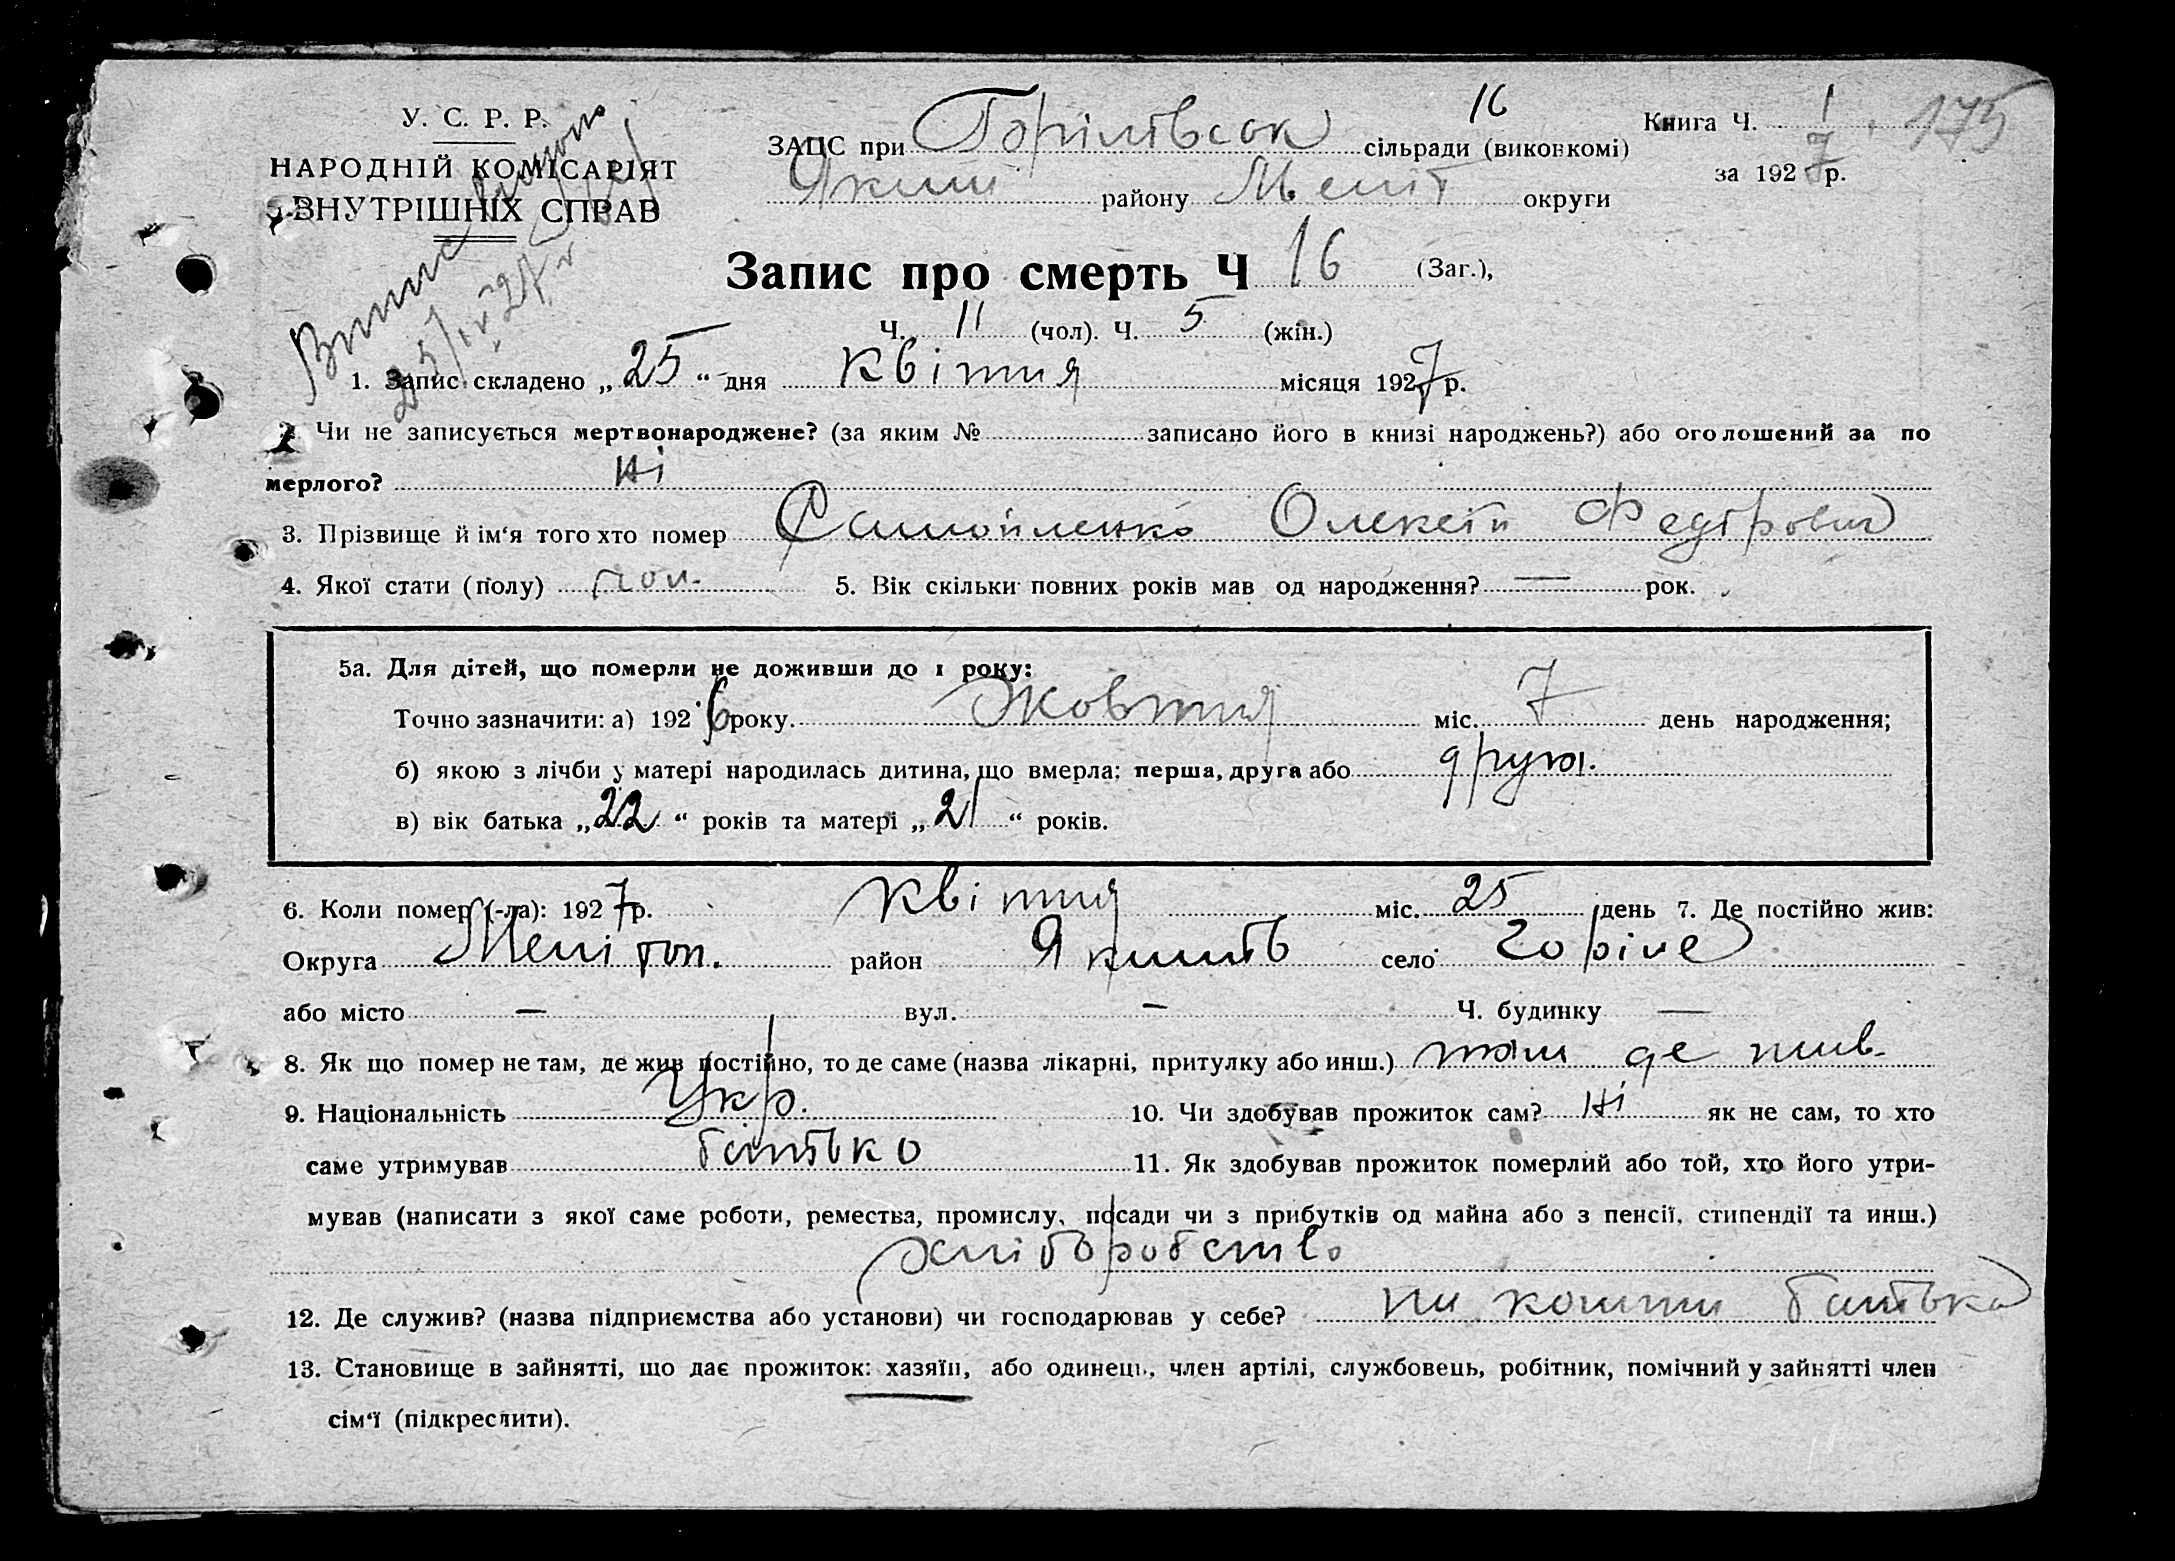 У. С. Р. Р.
НАРОДНІЙ КОМІСАРІЯТ
ВНУТРІШНІХ СПРАВ
16
ЗАПС при Горілівськ сільради (виконкомі)
Якими району Меліт округи
Книга Ч. 1 175
за 1927 р.
25/IV 27 р
Запис про смерть Ч 16 (Заг.),
Ч. 11 (чол). Ч. 5 (жін.)
1. Запис складено „25“ дня квітня місяця 1927 р.
2. Чи не записується мертвонароджене? (за яким № записано його в книзі народжень?) або оголошений за по
мерлого? Ні
3. Прізвище й ім'я того хто помер Самойленко Олексій Федірович
4. Якої стати (полу) чол. 5. Вік скільки повних років мав од народження? — рок.
5а. Для дітей, що померли не доживши до 1 року:
Точно зазначити: а) 1926 року. Жовтня міс. 7 день народження;
б) якою з лічби у матері народилась дитина, що вмерла: перша, друга або друга.
в) вік батька „22“ років та матері „21“ років.
6. Коли помер (-ла): 1927 р. квітня міс. 25 день 7. Де постійно жив:
Округа Мелітоп. район Якимів село Горіле
або місто — вул. — Ч. будинку —
8. Як що помер не там, де жив постійно, то де саме (назва лікарні, притулку або инш.) там де жив
9. Національність Укр. 10. Чи здобував прожиток сам? Ні як не сам, то хто
саме утримував батько 11. Як здобував прожиток померлий або той, хто його утри-
мував (написати з якої саме роботи, ремества, промислу, посади чи з прибутків од майна або з пенсії, стипендії та инш.)
хліборобство
12. Де служив? (назва підприємства або установи) чи господарював у себе? на кошти батька
13. Становище в зайнятті, що дає прожиток: хазяїн, або одинець, член артілі, службовець, робітник, помічний у зайнятті член
сім'ї (підкреслити).